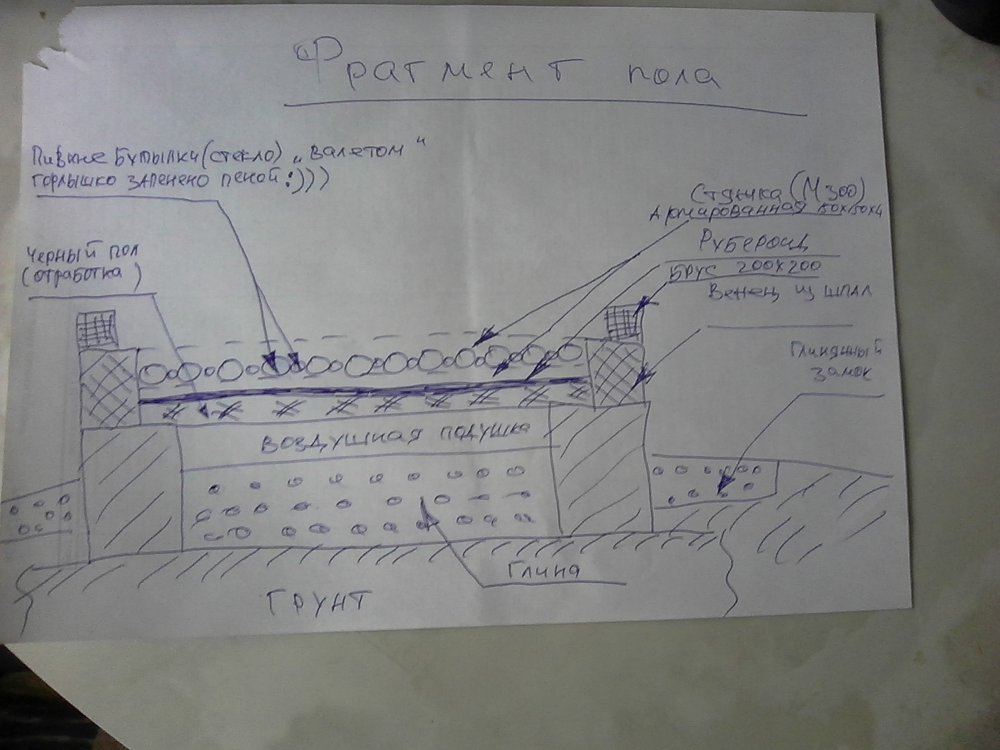 Фрагмент пола
Пивные Бутылки (стекло) „валетом"
горлышко запенено пеной:)))
Стяжка (М300)
Армированная 50х50х4
Рубероид
Брус 200х200
Венец из шпал
Черный пол
(отработка)
Глинянный
замок
Воздушная подушка
Глина
Грунт